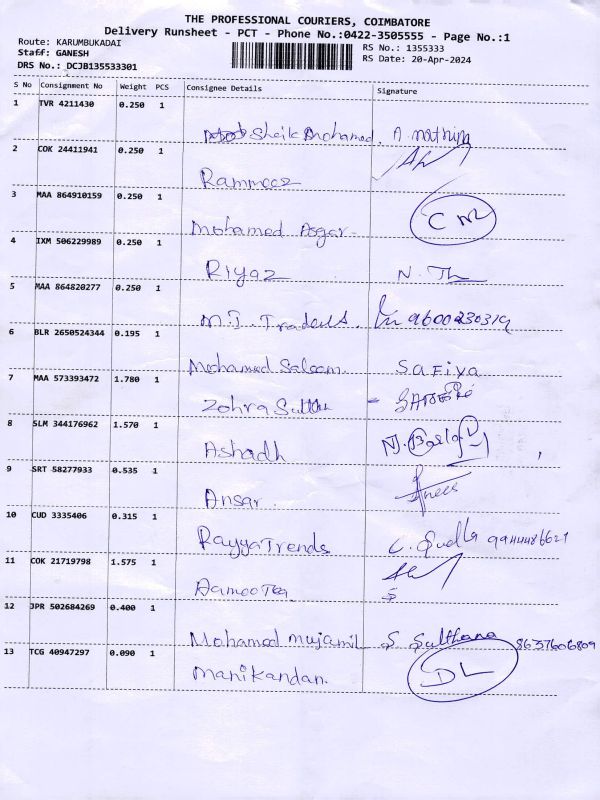 THE PROFESSIONAL COURIERS, COIMBATORE
Delivery Runsheet - PCT - Phone No.:0422-3505555 - Page No.:1
Route: KARUMBUKADAI
Staff: GANESH
DRS No.: DCJB135533301
RS No.: 1355333
RS Date: 20-Apr-2024
S No Consignment No Weight PCS Consignee Details Signature
1 TVR 4211430 0.250 1
Sheik Mohamed. A. nothing
2 COK 24411941 0.250 1
3 MAA 864910159 0.250 1
Mohamed Asgar.
4 IXM 506229989 0.250 1
Riyaz N. Th
5 MAA 864820277 0.250 1
M.J. Traders. 9600230319
6 BLR 2650524344 0.195 1
Mohamed Saleem. SaFiya
7 MAA 573393472 1.780 1
Zohra
8 SLM 344176962 1.570 1
Ashadh
9 SRT 58277933 0.535 1
Ansar.
10 CUD 3335406 0.315 1
Rayya Trends 9944486621
11 COK 21719798 1.575 1
12 JPR 502684269 0.400 1
Mohamed mujamil S. Sulthana 8637606809
13 TCG 40947297 0.090 1
Manikandan. DL